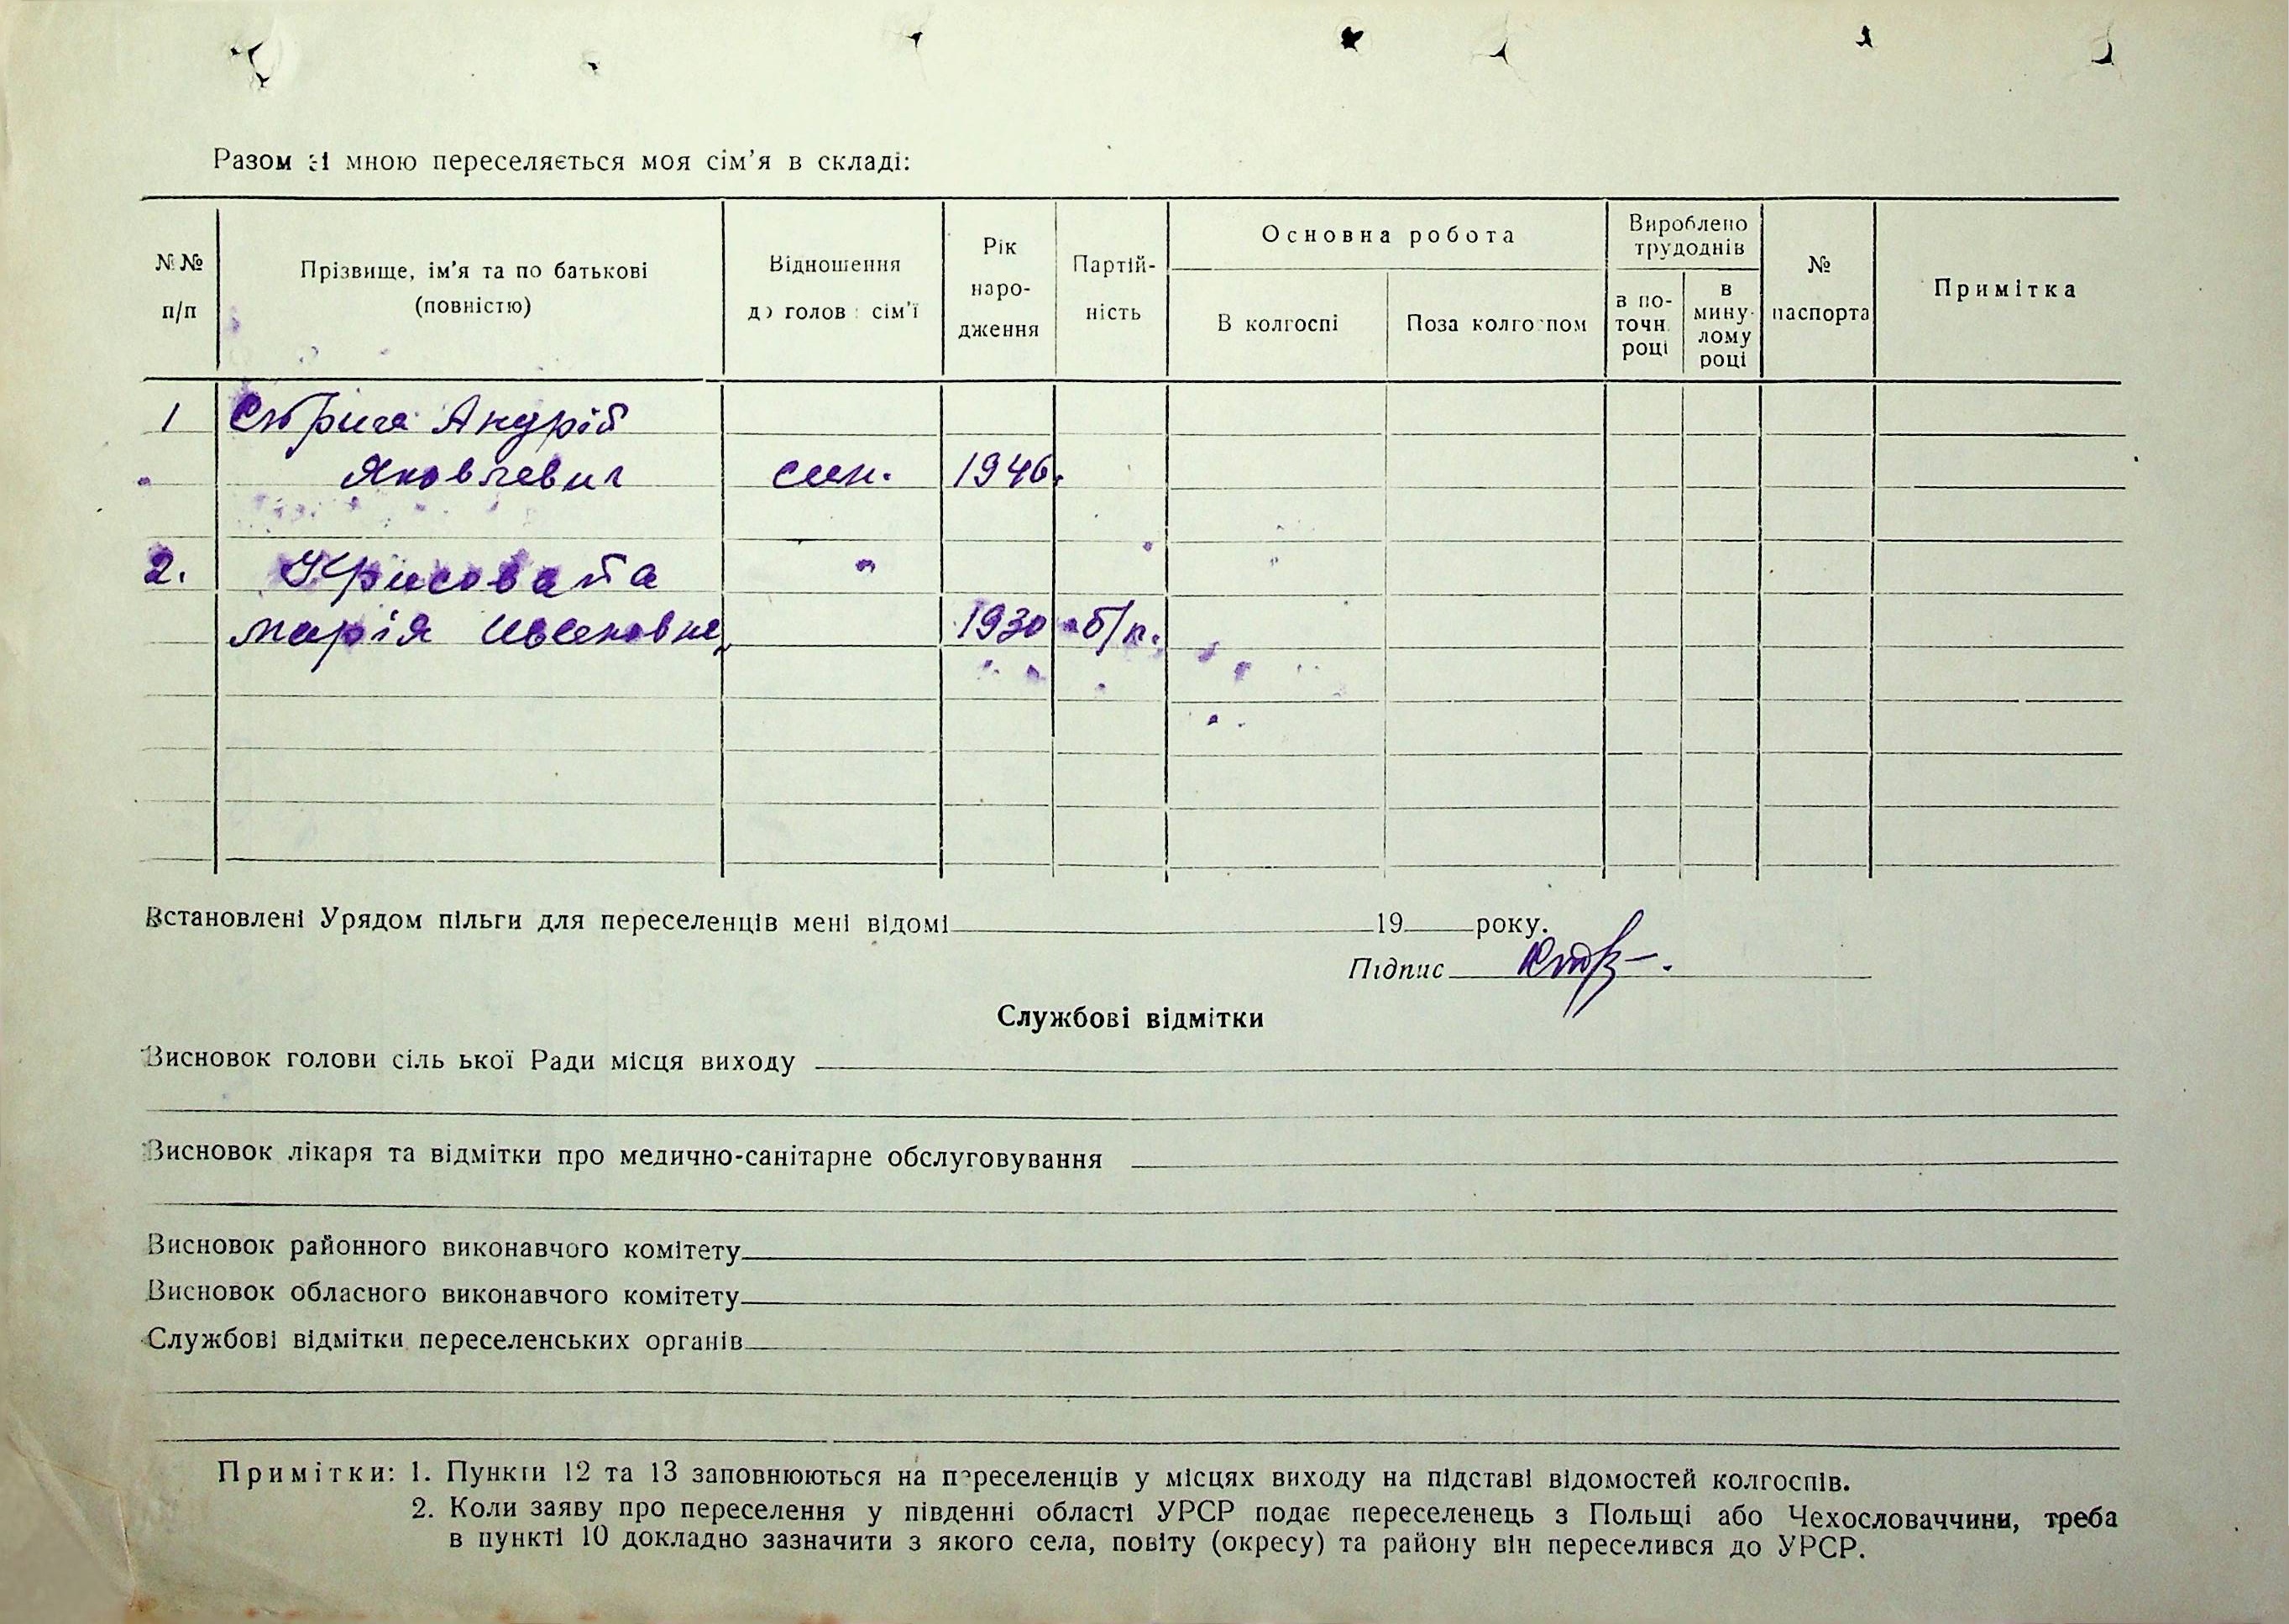 Разом зі мною переселяється моя сім’я в складі:
№№ п/п
Прізвище, ім’я та по батькові (повністю)
Відношення до голови сім’ї
Рік народження
Партійність
Основна робота
В колгоспі
Поза колгоспом
Вироблено трудоднів
в поточн. році
в минулому році
№ паспорта
Примітка
1 Андрій
Яковлевич син. 1946.
2. Крисовата "
Марія Ивановна, 1930 б/п.
Встановлені Урядом пільги для переселенців мені відомі 19 року.
Підпис
Службові відмітки
Висновок голови сільської Ради місця виходу
Висновок лікаря та відмітки про медично-санітарне обслуговування
Висновок районного виконавчого комітету
Висновок обласного виконавчого комітету
Службові відмітки переселенських органів
Примітки: 1. Пункти 12 та 13 заповнюються на переселенців у місцях виходу на підставі відомостей колгоспів.
2. Коли заяву про переселення у південні області УРСР подає переселенець з Польщі або Чехословаччини, треба
в пункті 10 докладно зазначити з якого села, повіту (окресу) та району він переселився до УРСР.